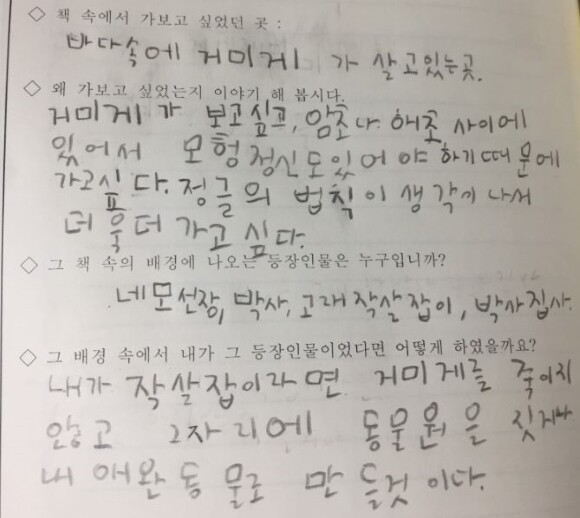 ◇ 책 속에서 가보고 싶었던 곳 :
바다속에 거미게가 살고있는곳.
◇ 왜 가보고 싶었는지 이야기 해 봅시다.
거미게가 보고싶고, 암초나 해초 사이에
있어서 모험정신도있어야 하기때문에
가고싶다. 정글의 법칙이 생각기나서
더욱더 가고싶다.
◇ 그 책 속의 배경에 나오는 등장인물은 누구입니까?
네모선장, 박사, 고래작살잡이, 박사집사.
◇ 그 배경 속에서 내가 그 등장인물이었다면 어떻게 하였을까요?
내가 작살잡이라면 거미게를 죽이지
않고 그자리에 동물원을 짓거나
내 애완동물로 만들것이다.